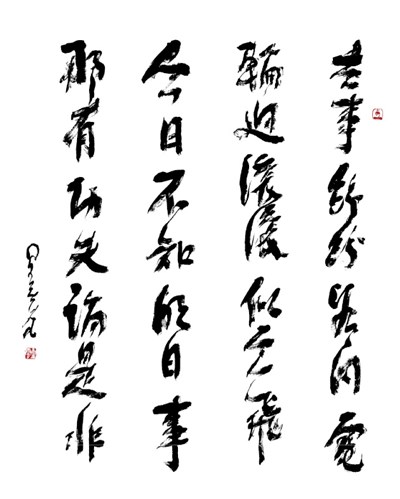 世事紛紛如閃電
輪迴滾滾似雲飛
今日不知明日事
那有功夫論是非